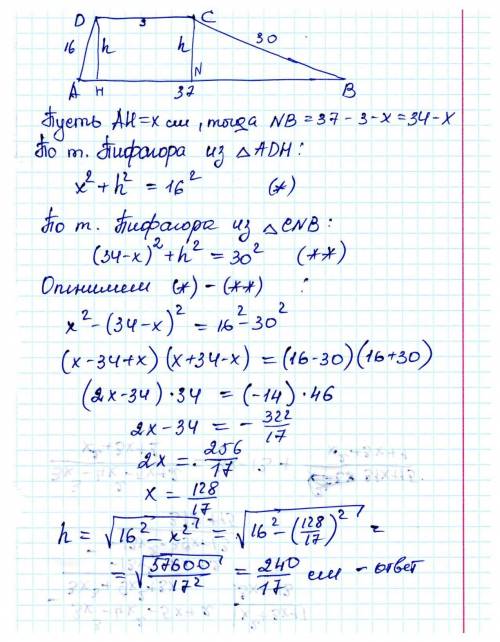 D 3 C
16 h h 30
A H 37 N B
Пусть AH = x см, тогда NB = 37 - 3 - x = 34 - x
По т. Пифагора из △ADH:
x² + h² = 16² (*)
По т. Пифагора из △CNB:
(34-x)² + h² = 30² (**)
Отнимем (*) - (**) :
x² - (34-x)² = 16² - 30²
(x-34+x)(x+34-x) = (16-30)(16+30)
(2x-34)·34 = (-14)·46
2x-34 = - 322/17
2x = 256/17
x = 128/17
h = √(16² - x²) = √(16² - (128/17)²) =
= √(57600/17²) = 240/17 см - ответ